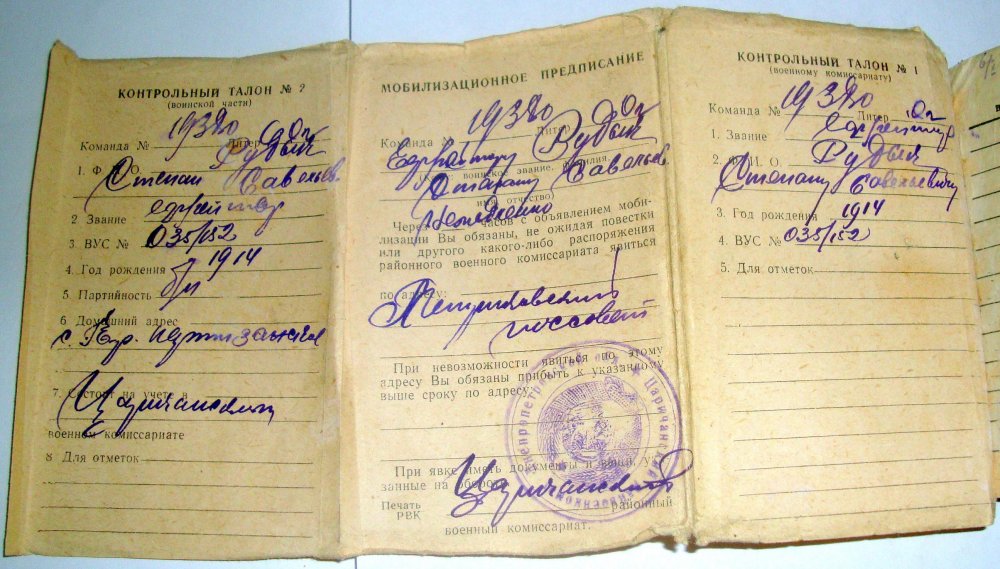 КОНТРОЛЬНЫЙ ТАЛОН № 2
(воинской части)
Команда № 19320 Литер
1. Ф. И. О. Рудых
Степан Савельев.
2 Звание
3. ВУС № 035/152
4. Год рождения 1914
5. Партийность б/п
6 Домашний адрес
7. Состоит на учете в
Царичанском
военном комиссариате
8 Для отметок
МОБИЛИЗАЦИОННОЕ ПРЕДПИСАНИЕ
Команда № 19320 Литер
воинское звание, фамилия,
имя отчество)
Через часов с объявлением моби-
лизации Вы обязаны, не ожидая повестки
или другого какого-либо распоряжения
районного военного комиссариата явиться
по адресу:
поссовет
При невозможности явиться по этому
адресу Вы обязаны прибыть к указанному
выше сроку по адресу:
При явке иметь документы и вещи, ука-
занные на обороте
Царичанский
Печать районный
РВК
военный комиссариат.
КОНТРОЛЬНЫЙ ТАЛОН № 1
(военному комиссариату)
Команда № 19320 Литер
1. Звание
2. Ф. И. О.
Степану Савельевичу
3. Год рождения 1914
4. ВУС № 035/152
5. Для отметок